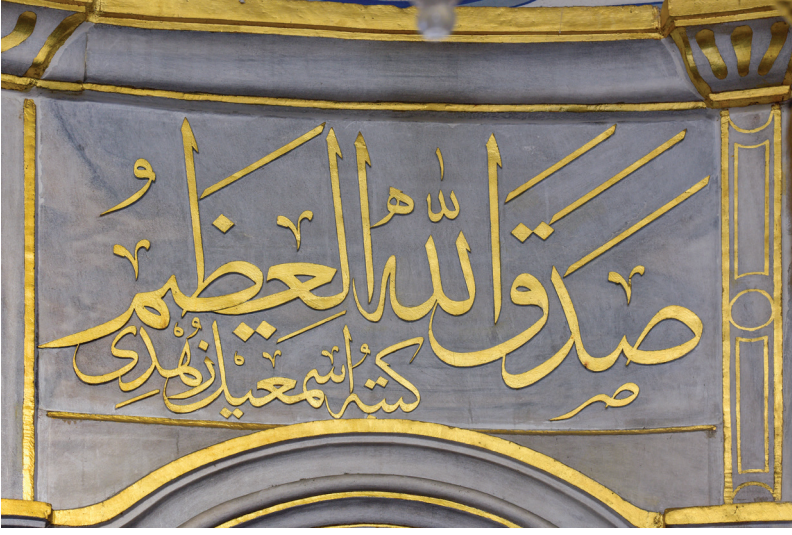 صَدَقَ اللّٰهُ العَظِيمُ
كتبه اسمعيل زهدي